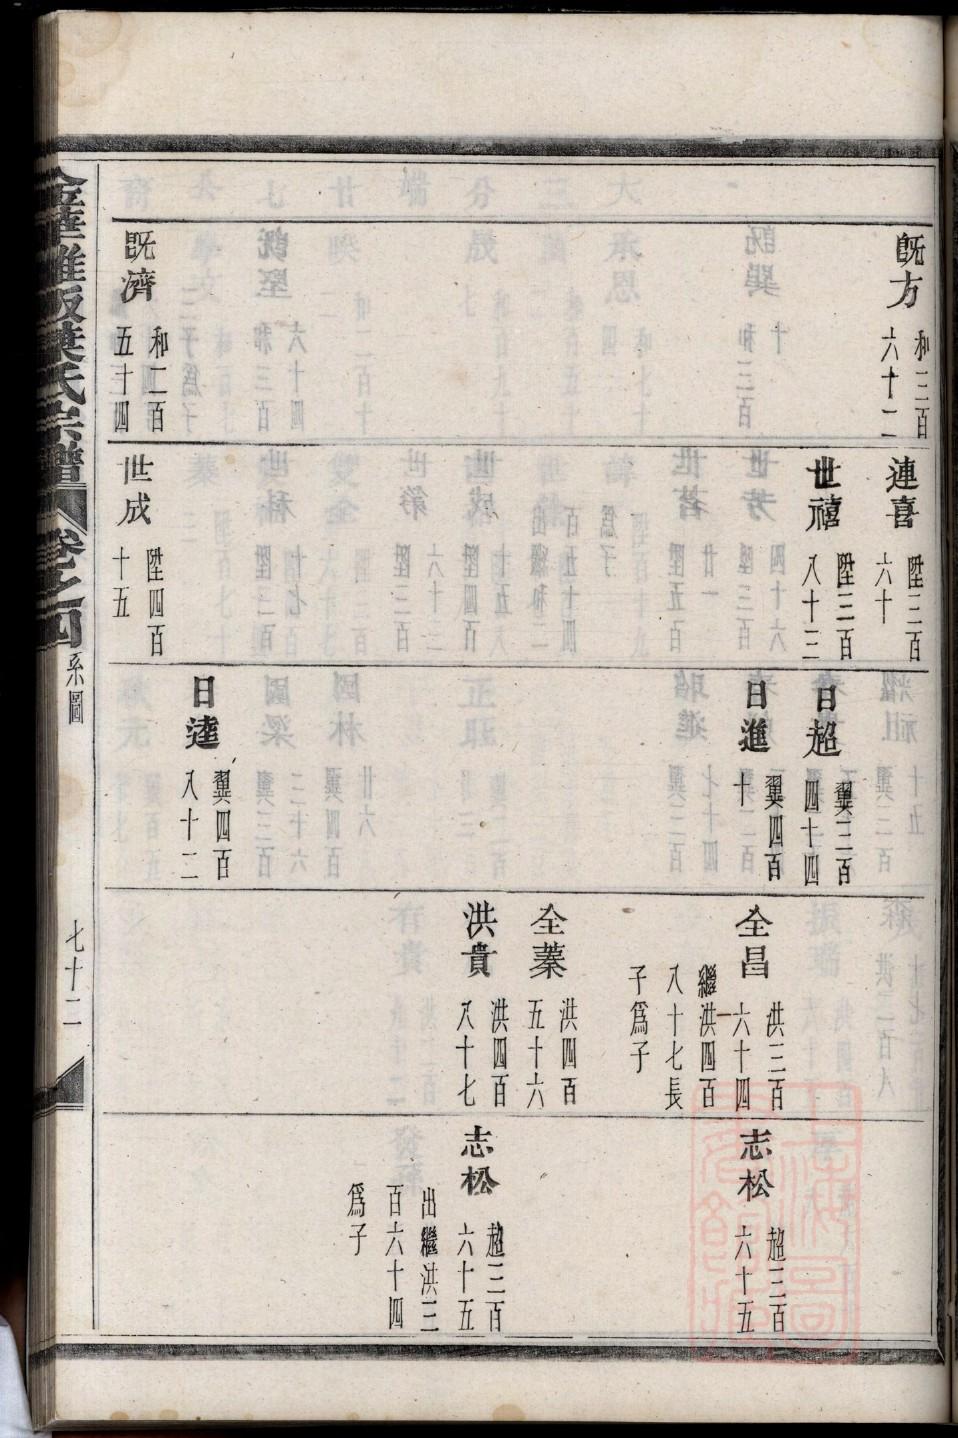 既方
和三百
六十二
既濟
和二百
五十四
連喜
陞三百
六十
世禧
陞三百
八十三
世成
陞四百
十五
日超
翼三百
四十四
日進
翼四百
十
日逵
翼四百
八十二
全昌
洪三百
六十四
繼洪四百
八十七長
子爲子
全蓁
洪四百
五十六
洪貴
洪四百
八十七
志松
超三百
六十五
志松
超三百
六十五
出繼洪三
百六十四
爲子
金華雅畈葉氏宗譜
卷之四
系圖
七十二